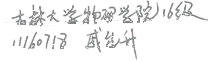 吉林大学物理学院16级
11160718 戚宏升